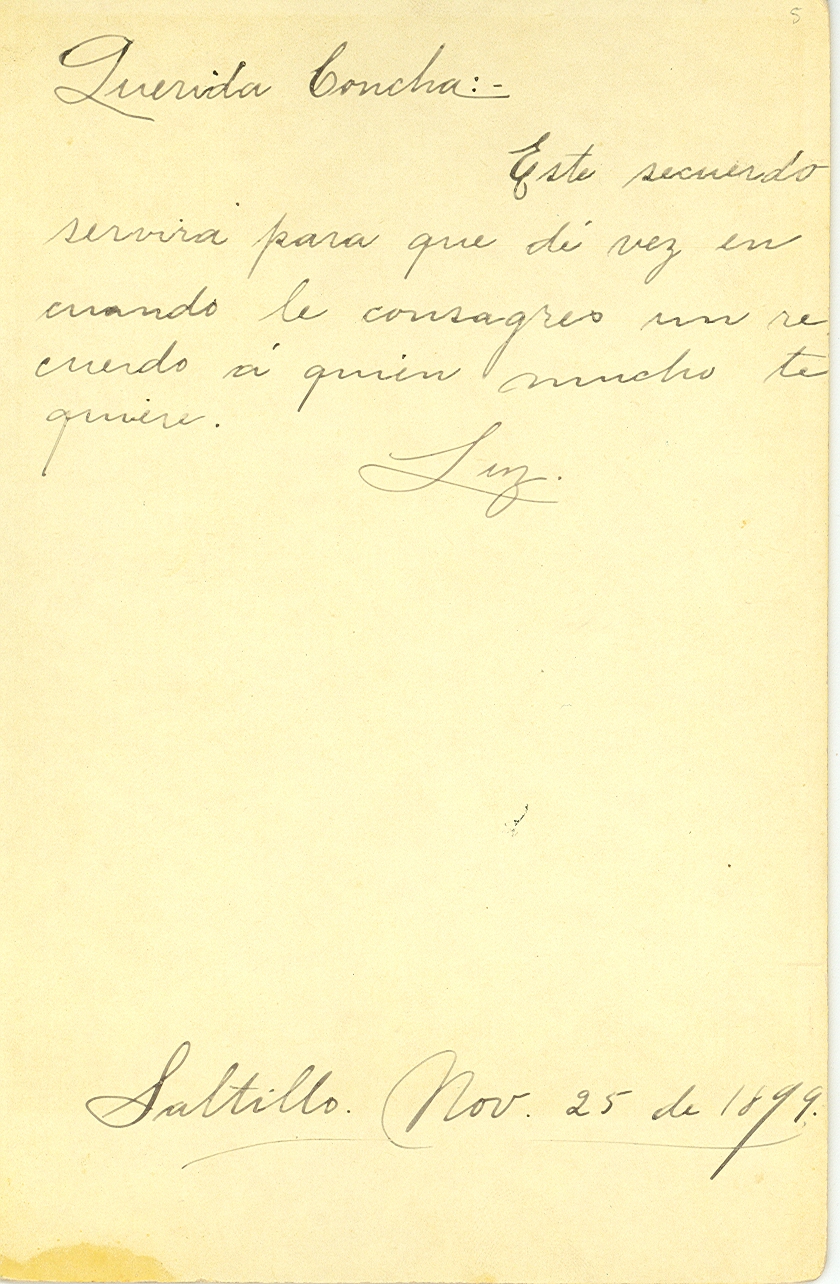 5
Querida Concha:-
Este recuerdo
servirá para que dé vez en
cuando le consagres un re
cuerdo á quien mucho te
quiere.
Luz.
Saltillo. Nov. 25 de 1899.